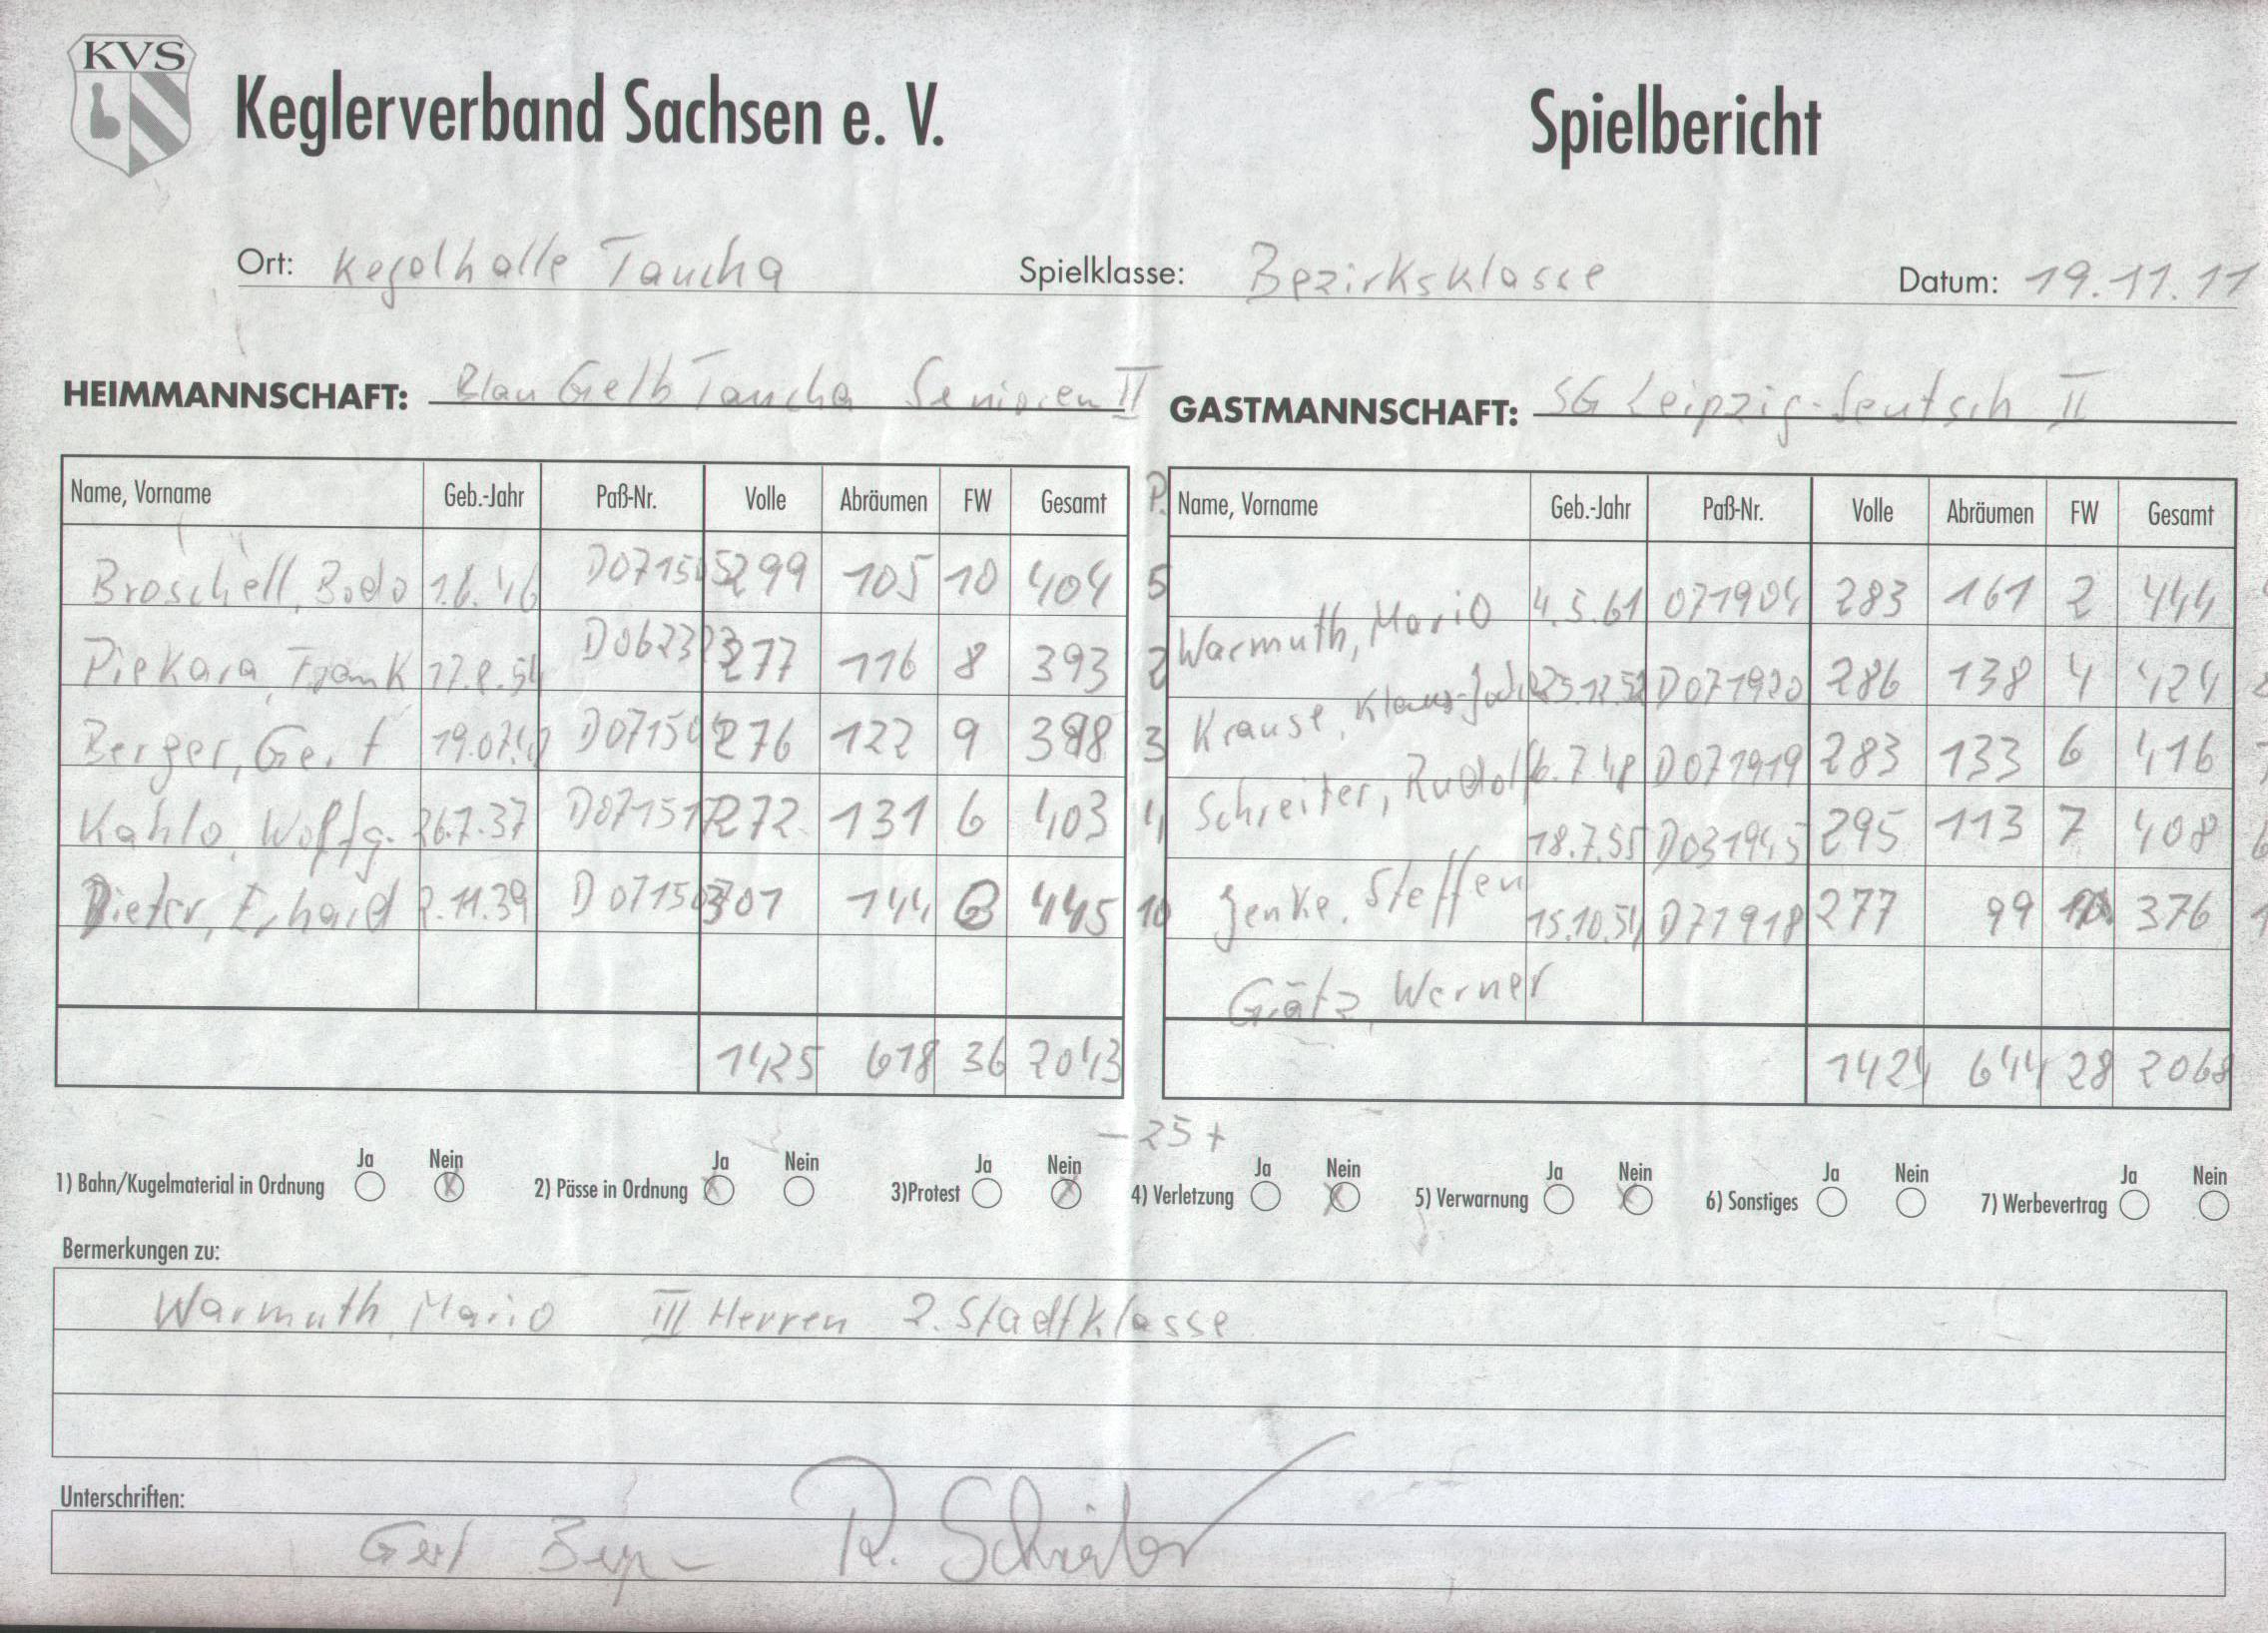 KVS
Keglerverband Sachsen e. V. Spielbericht
Ort: Kegelhalle Taucha Spielklasse: Bezirksklasse Datum: 19.11.11
HEIMMANNSCHAFT: Blau Gelb Taucha Senioren II GASTMANNSCHAFT: SG Leipzig-Leutsch II
Name, Vorname Geb.-Jahr Paß-Nr. Volle Abräumen FW Gesamt P. Name, Vorname Geb.-Jahr Paß-Nr. Volle Abräumen FW Gesamt
Broschell, Bodo 1.6.46 299 105 10 404 5 Warmuth, Mario 4.5.61 071904 283 161 2 444
Piekara, Frank 17.8.54 277 116 8 393 2 Krause, 25.12.52 D071920 286 138 4 424
Berger, Gert 276 122 9 398 3 Schreiter, Rudolf 6.7.48 D071919 283 133 6 416
Kahlo, Wolfg. 26.7.37 D071517 272 131 6 403 4 Jenke, Steffen 18.7.55 D031945 295 113 7 408 6
Dieter, Erhard 2.11.39 301 144 3 445 10 Grätz, Werner 15.10.54 D71918 277 99 376 1
1425 618 36 2043 1424 644 28 2068
- 25 +
1) Bahn/Kugelmaterial in Ordnung Ja Nein X 2) Pässe in Ordnung Ja X Nein 3)Protest Ja Nein X 4) Verletzung Ja Nein X 5) Verwarnung Ja Nein X 6) Sonstiges Ja Nein 7) Werbevertrag Ja Nein
Bermerkungen zu:
Warmuth, Mario III Herren 2. Stadtklasse
Unterschriften:
Gert R. Schreiter